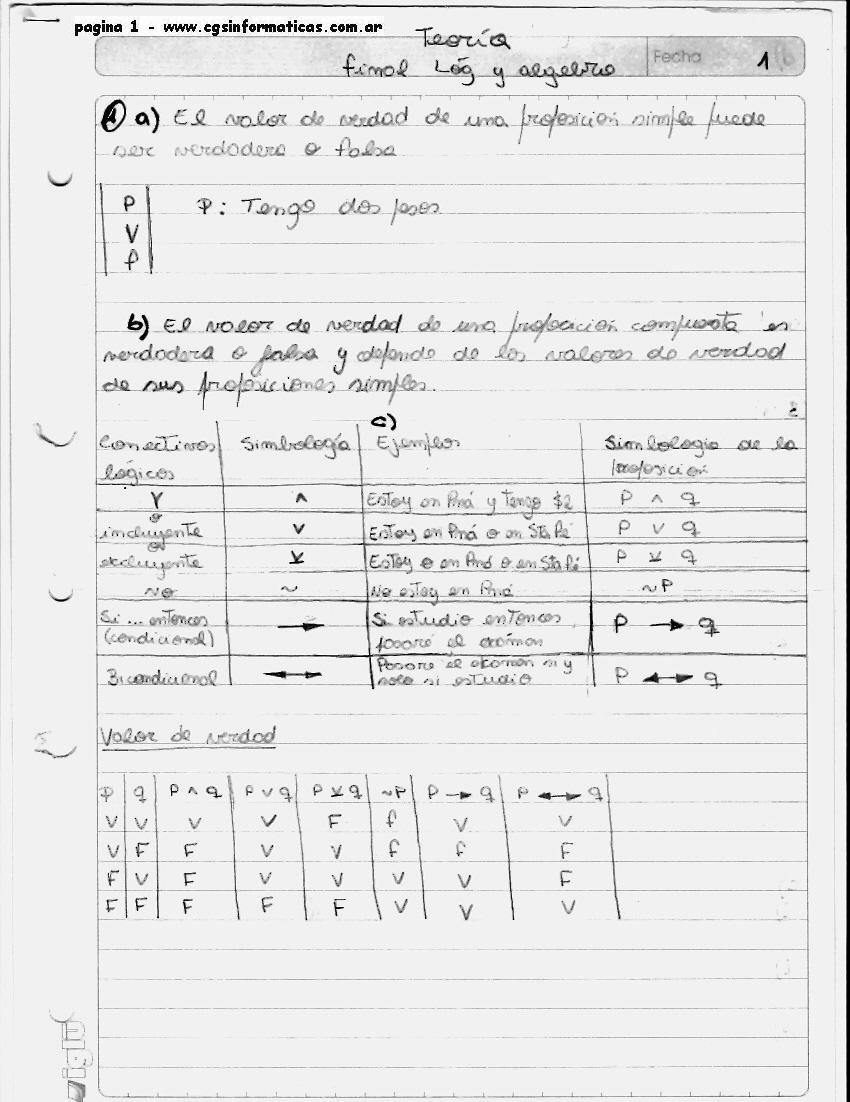 pagina 1 - www.cgsinformaticas.com.ar
Teoría
final Lóg y algebra
Fecha 1
1 a) El valor de verdad de una proposicion simple puede
ser verdadera o falsa
P
V
f
P: Tengo dos pesos
b) El valor de verdad de una proposicion compuesta es
verdadera o falsa y depende de los valores de verdad
de sus proposiciones simples.
c)
Conectivos Simbología Ejemplos Simbologia de la
lógicos proposicion
Y ∧ Estoy en Pná y tengo $2 P ∧ q
o
incluyente ∨ Estoy en Pná o en Sta Fé P ∨ q
o
excluyente ⊻ Estoy o en Pná o en Sta Fé P ⊻ q
no ~ No estoy en Pná ~P
Si ... entonces → Si estudio entonces P → q
(condicional) pasaré el exámen
Bicondicional ↔ Pasare el examen si y P ↔ q
solo si estudio
Valor de verdad
P q P ∧ q P ∨ q P ⊻ q ~P P → q P ↔ q
V V V V F f V V
V F F V V f f F
F V F V V V V F
F F F F F V V V